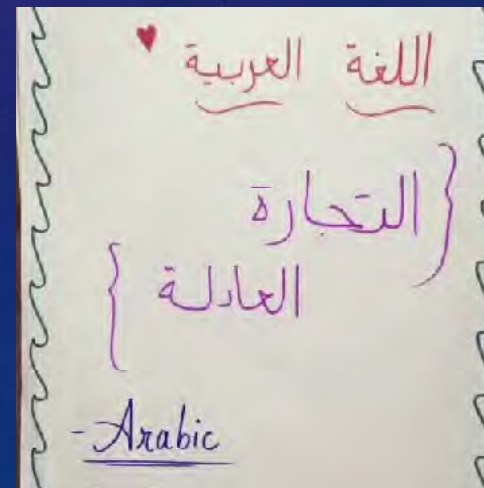 اللغة العربية ♥
{ التجارة
العادلة }
- Arabic